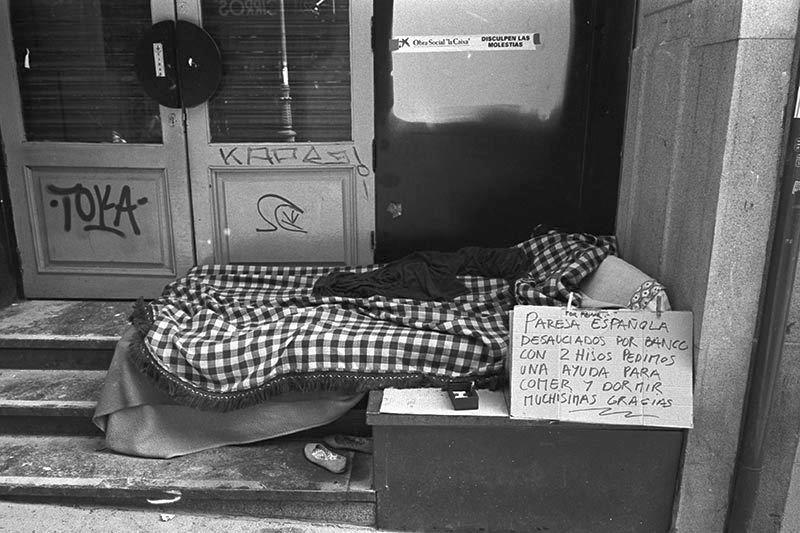 Obra Social "la Caixa" DISCULPEN LAS MOLESTIAS
·TOKA·
POR FAVOR
PAREJA ESPAÑOLA
DESAUCIADOS POR BANCO
CON 2 HIJOS PEDIMOS
UNA AYUDA PARA
COMER Y DORMIR
MUCHISIMAS GRACIAS